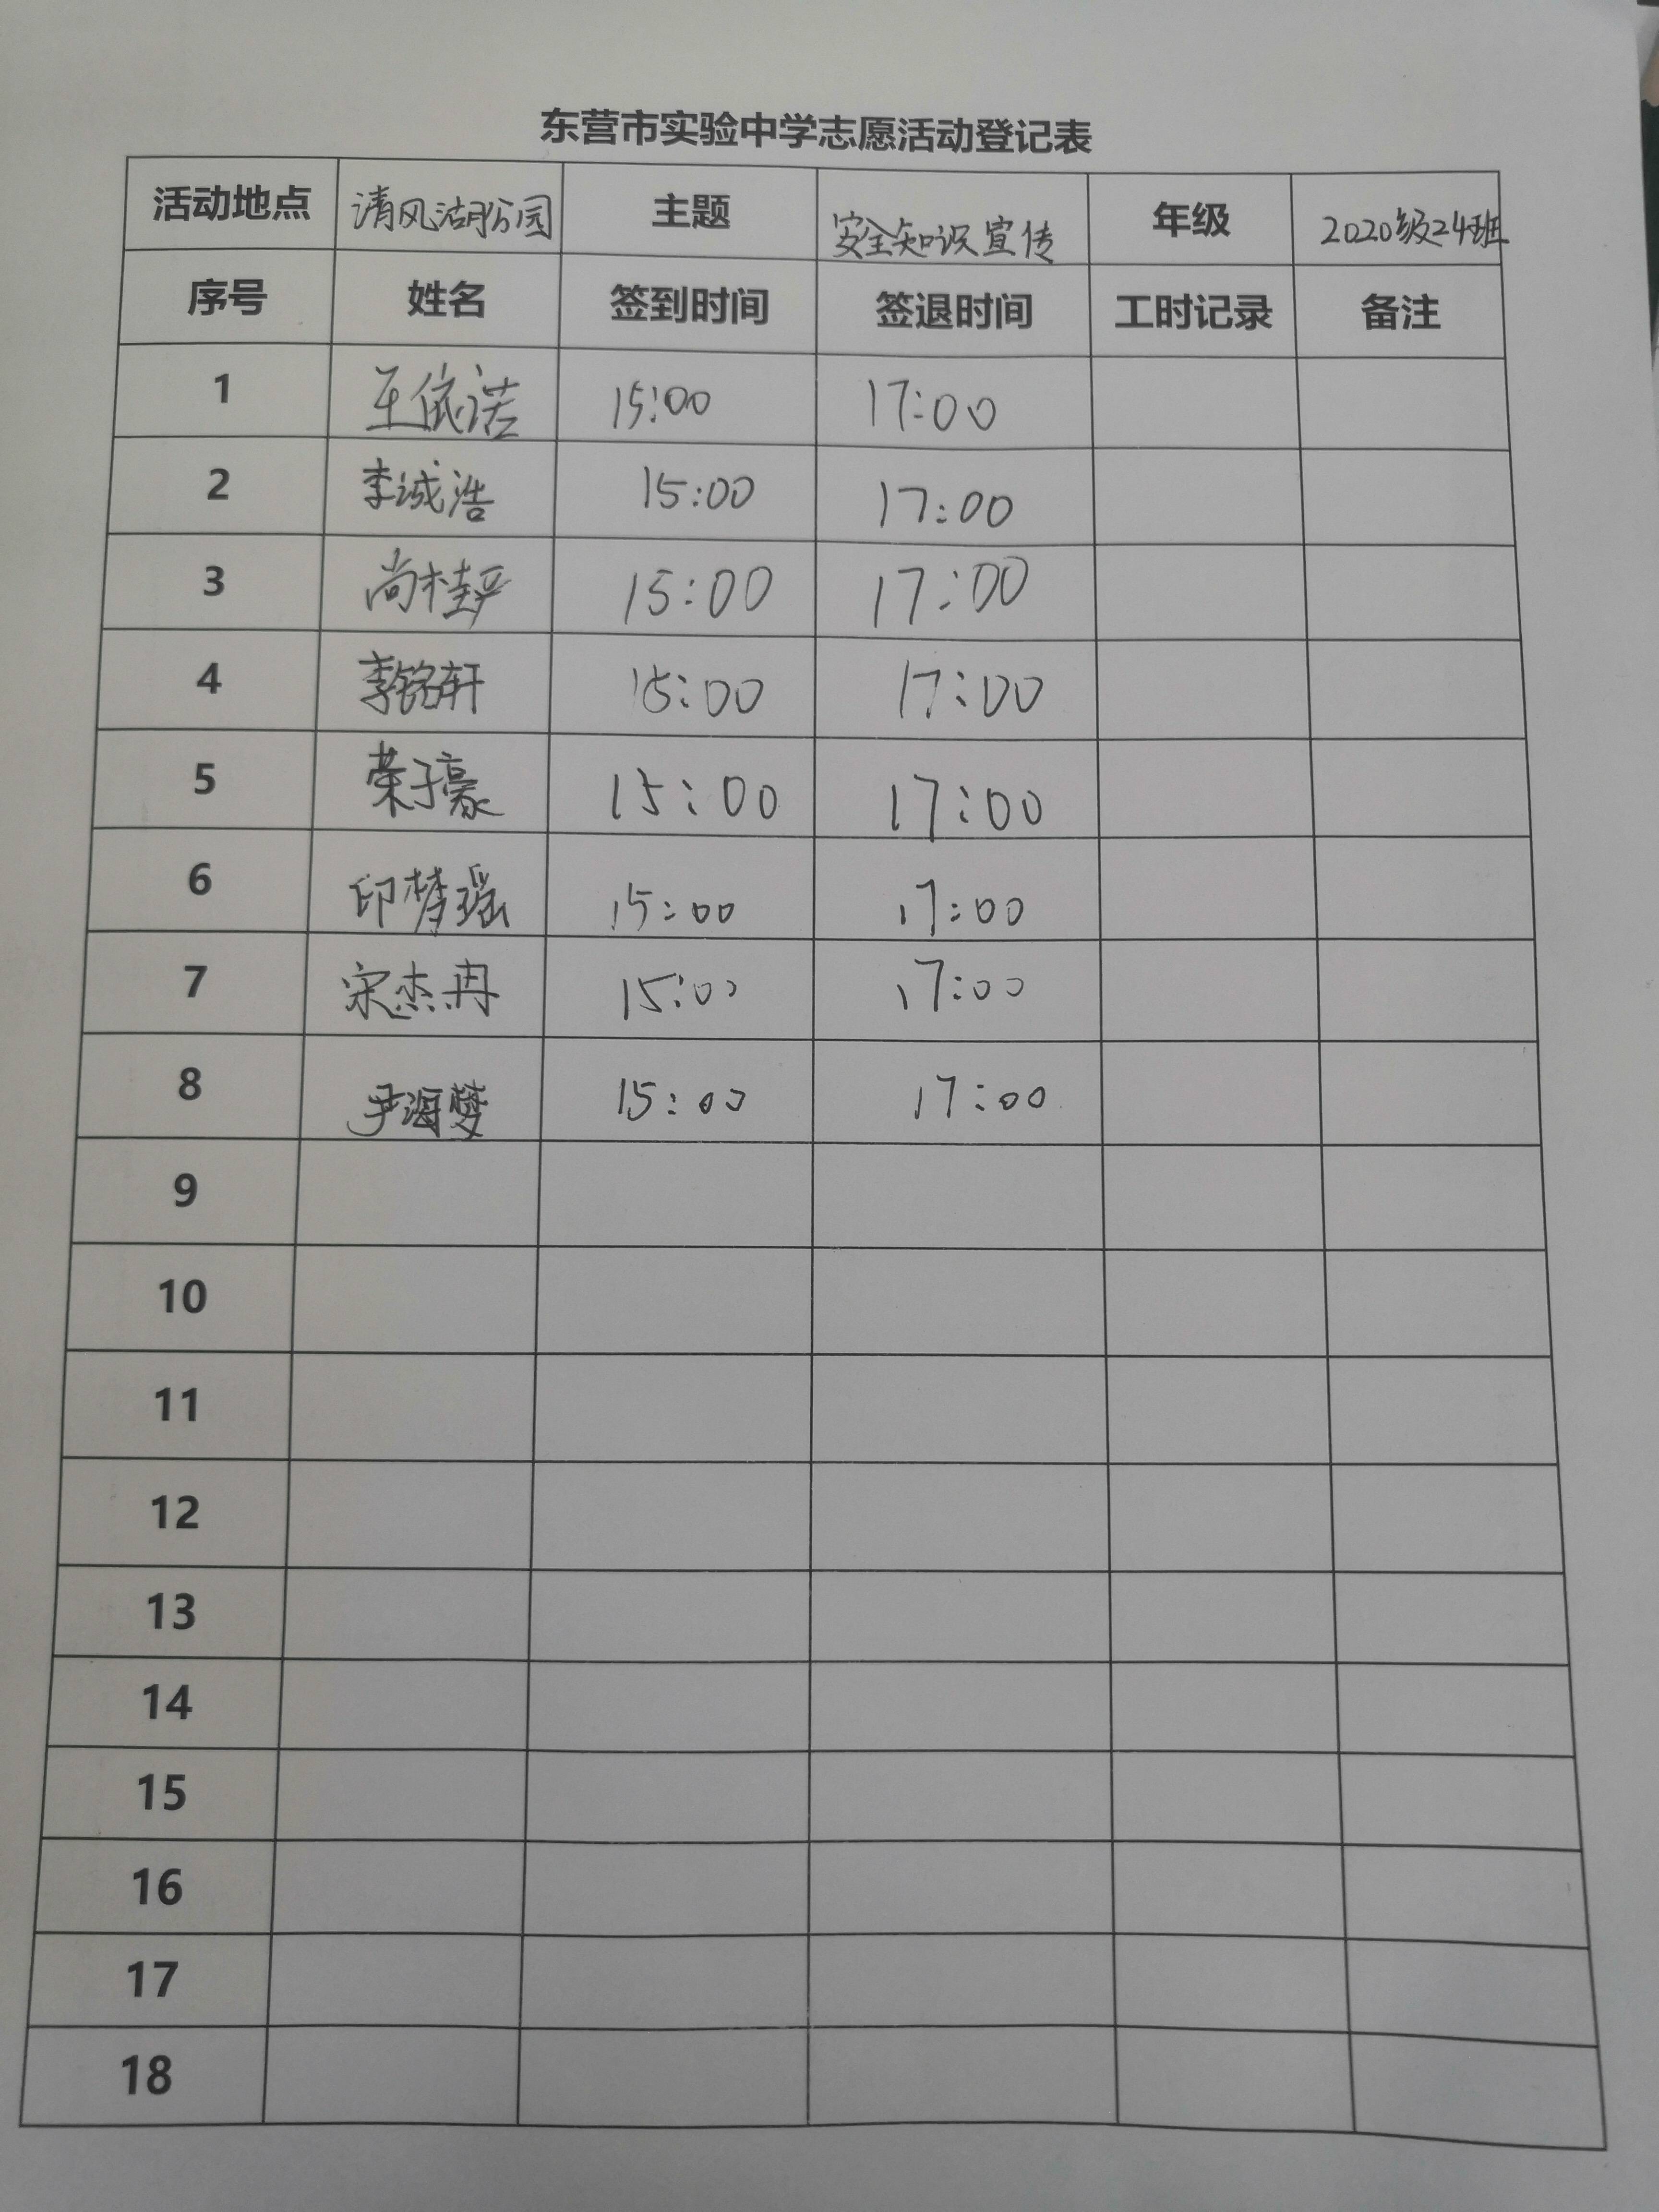 东营市实验中学志愿活动登记表
活动地点 清风湖公园 主题 安全知识宣传 年级 2020级24班
序号 姓名 签到时间 签退时间 工时记录 备注
1 王依诺 15:00 17:00
2 李诚浩 15:00 17:00
3 尚桂严 15:00 17:00
4 李铭轩 15:00 17:00
5 荣子豪 15:00 17:00
6 印梦瑶 15:00 17:00
7 宋杰冉 15:00 17:00
8 尹海梦 15:00 17:00
9
10
11
12
13
14
15
16
17
18